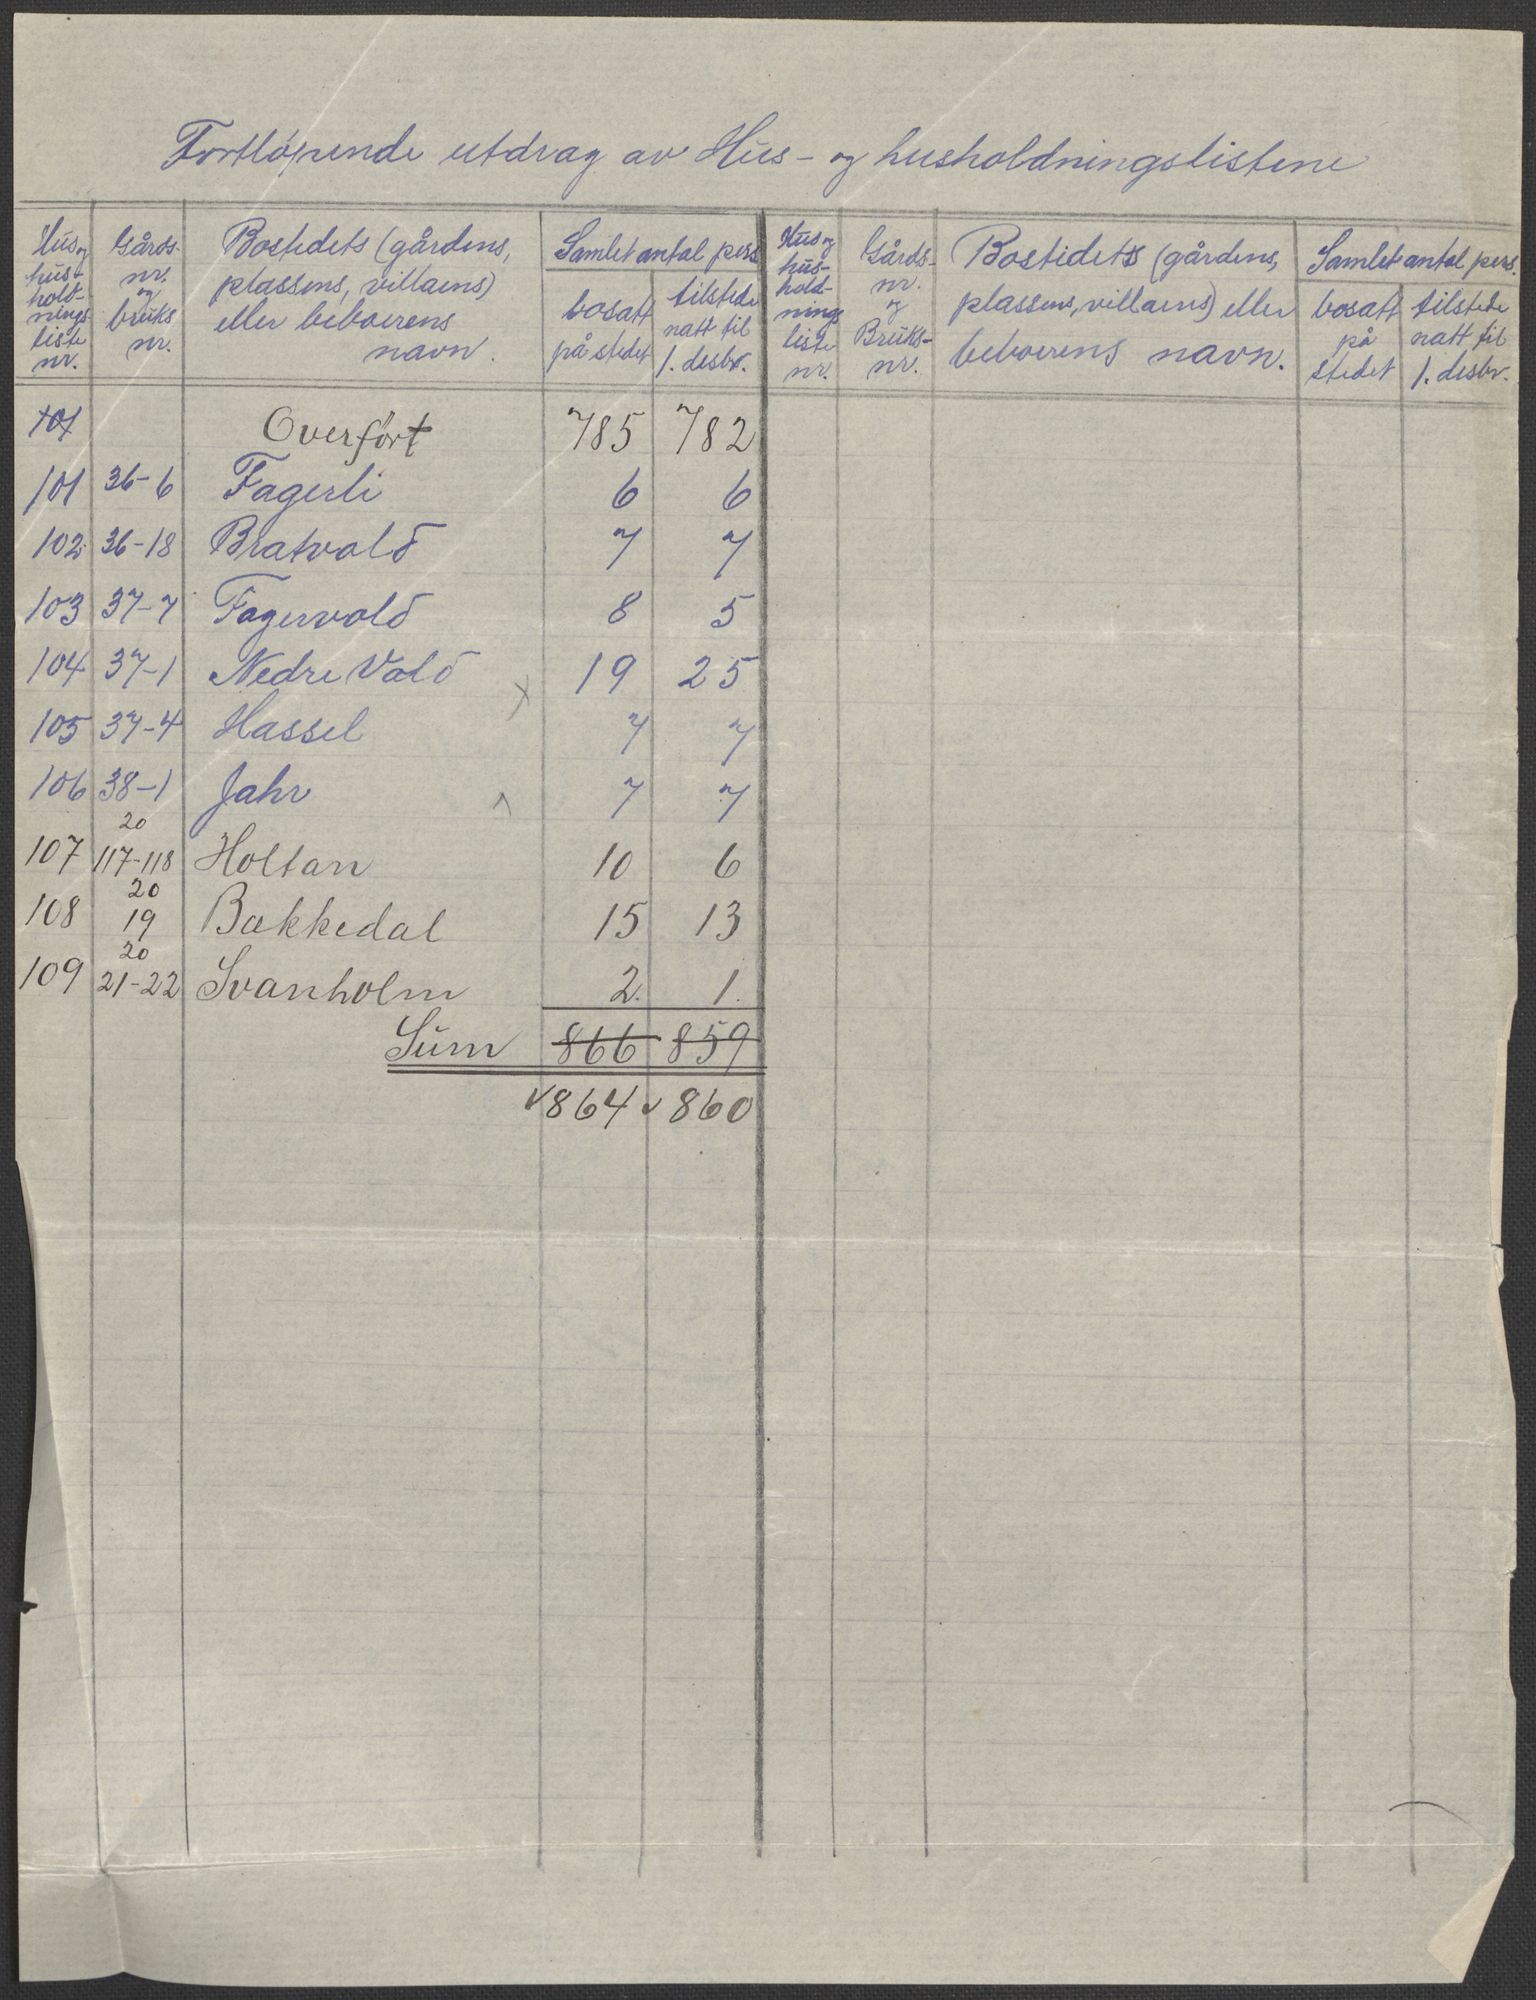 Fortløpende utdrag av Hus- og husholdningslistene
Hus og hus- hold- nings liste nr.
Gårds- nr. og bruks nr.
Bostedets (gårdens, plassens, villaens) eller beboerens navn.
Samlet antal pers.
bosatt på stedet
tilstede natt til 1. desbr.
Hus og hus- hold- nings liste nr.
Gårds- nr. og Bruks- nr.
Bostedets (gårdens, plassens, villaens) eller beboerens navn.
Samlet antal pers.
bosatt på stedet
tilstede natt til 1. desbr.
101 Overført 785 782
101 36-6 Fagerli 6 6
102 36-18 Bratvold 7 7
103 37-7 Fagervold 8 5
104 37-1 Nedre Vold 19 25
105 37-4 Hassel 7 7
106 38-1 Jahr 7 7
107 20 117-118 Holtan 10 6
108 20 19 Bakkedal 15 13
109 20 21-22 Svanholm 2. 1.
Sum 866 859
✓864 ✓860